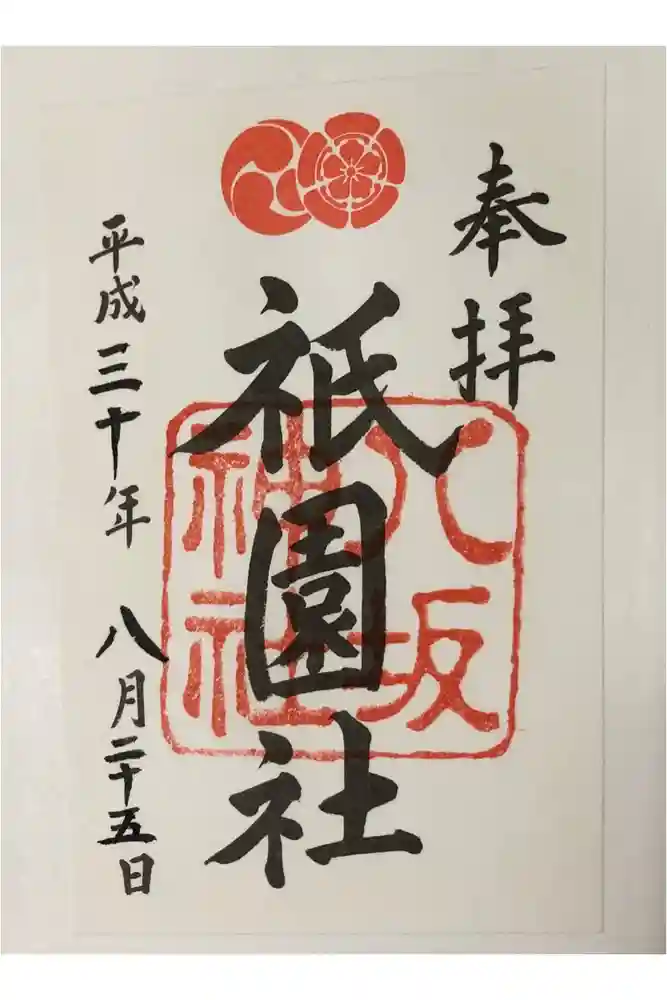 奉拝
祇園社
八坂
神社
平成三十年 八月二十五日